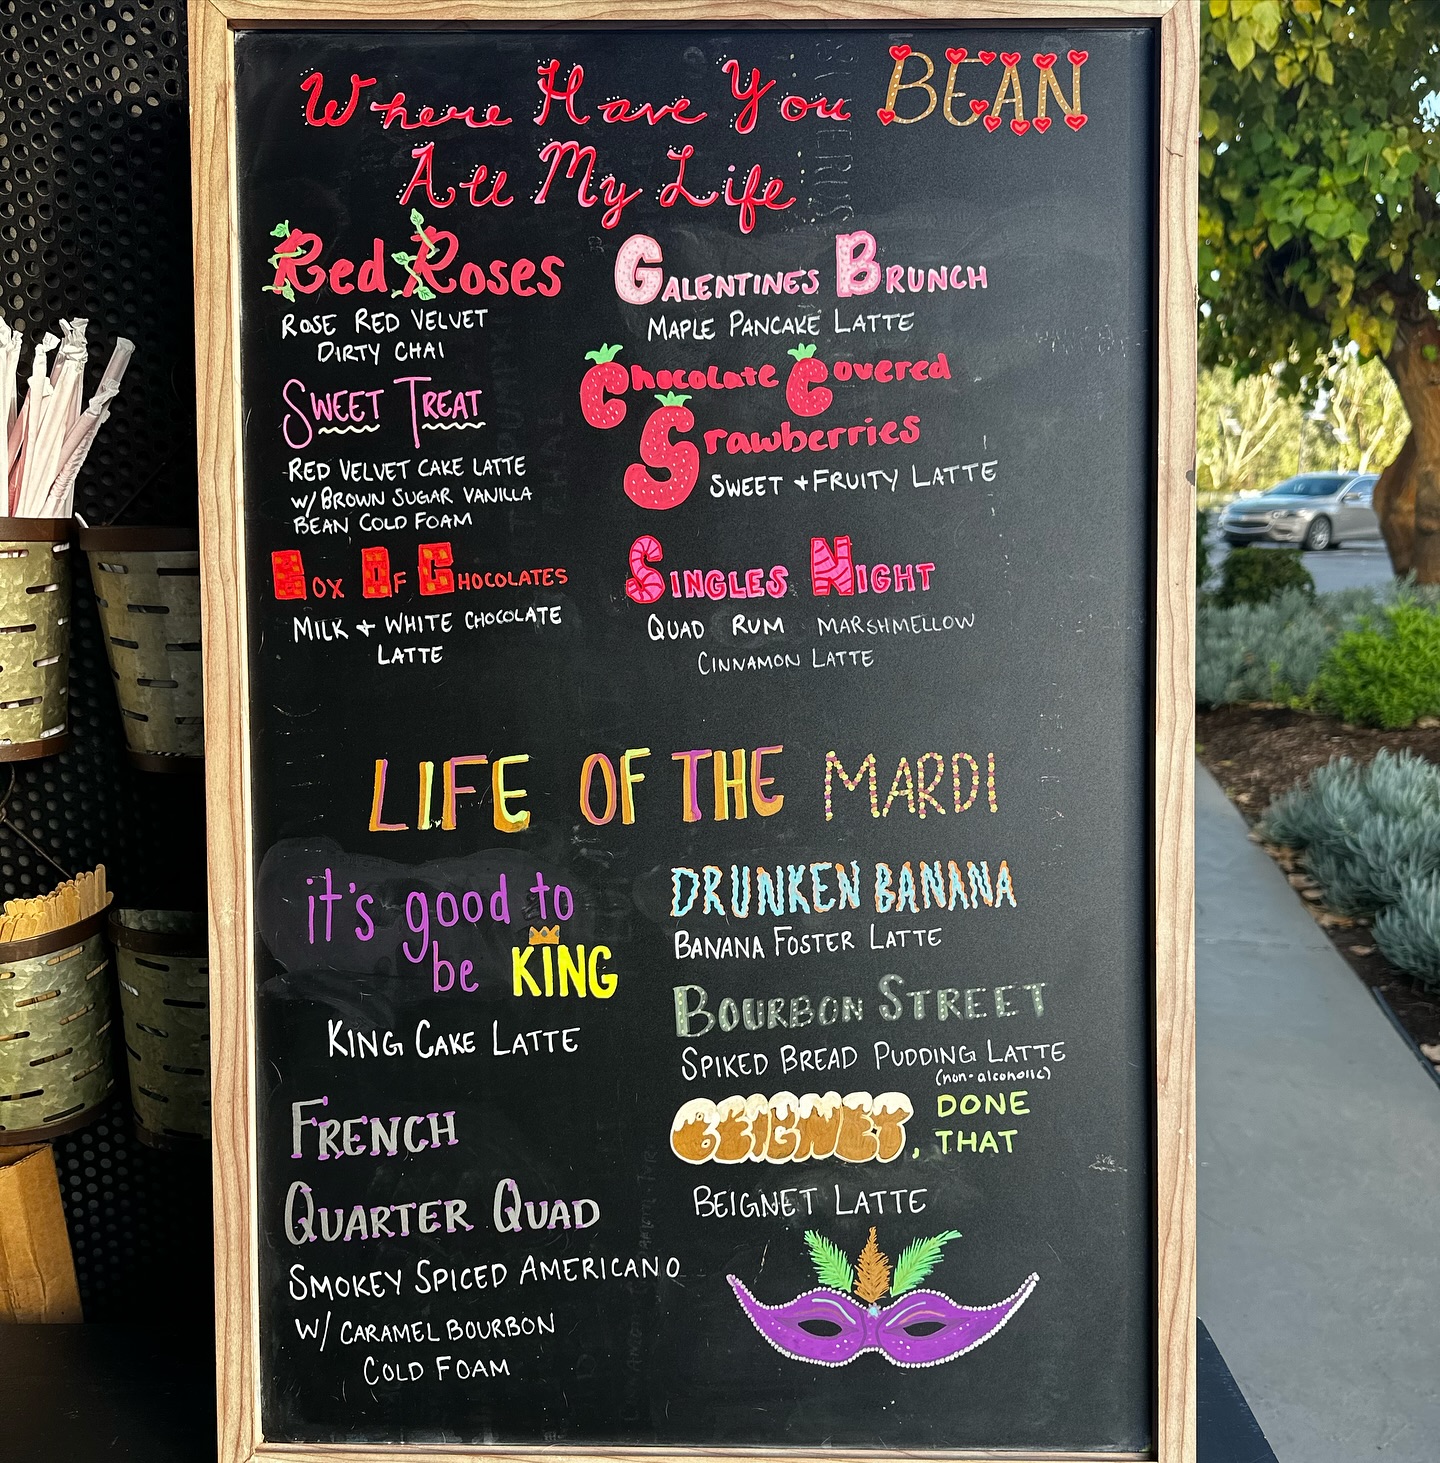 Where Have You BEAN
All My Life
Red Roses
ROSE RED VELVET
DIRTY CHAI
SWEET TREAT
RED VELVET CAKE LATTE
W/ BROWN SUGAR VANILLA
BEAN COLD FOAM
BOX OF CHOCOLATES
MILK + WHITE CHOCOLATE
LATTE
GALENTINES BRUNCH
MAPLE PANCAKE LATTE
Chocolate Covered
Srawberries
SWEET + FRUITY LATTE
SINGLES NIGHT
QUAD RUM MARSHMELLOW
CINNAMON LATTE
LIFE OF THE MARDI
it's good to
be KING
KING CAKE LATTE
FRENCH
QUARTER QUAD
SMOKEY SPICED AMERICANO
W/ CARAMEL BOURBON
COLD FOAM
DRUNKEN BANANA
BANANA FOSTER LATTE
BOURBON STREET
SPIKED BREAD PUDDING LATTE
(non-alcoholic)
BEIGNET, DONE
THAT
BEIGNET LATTE